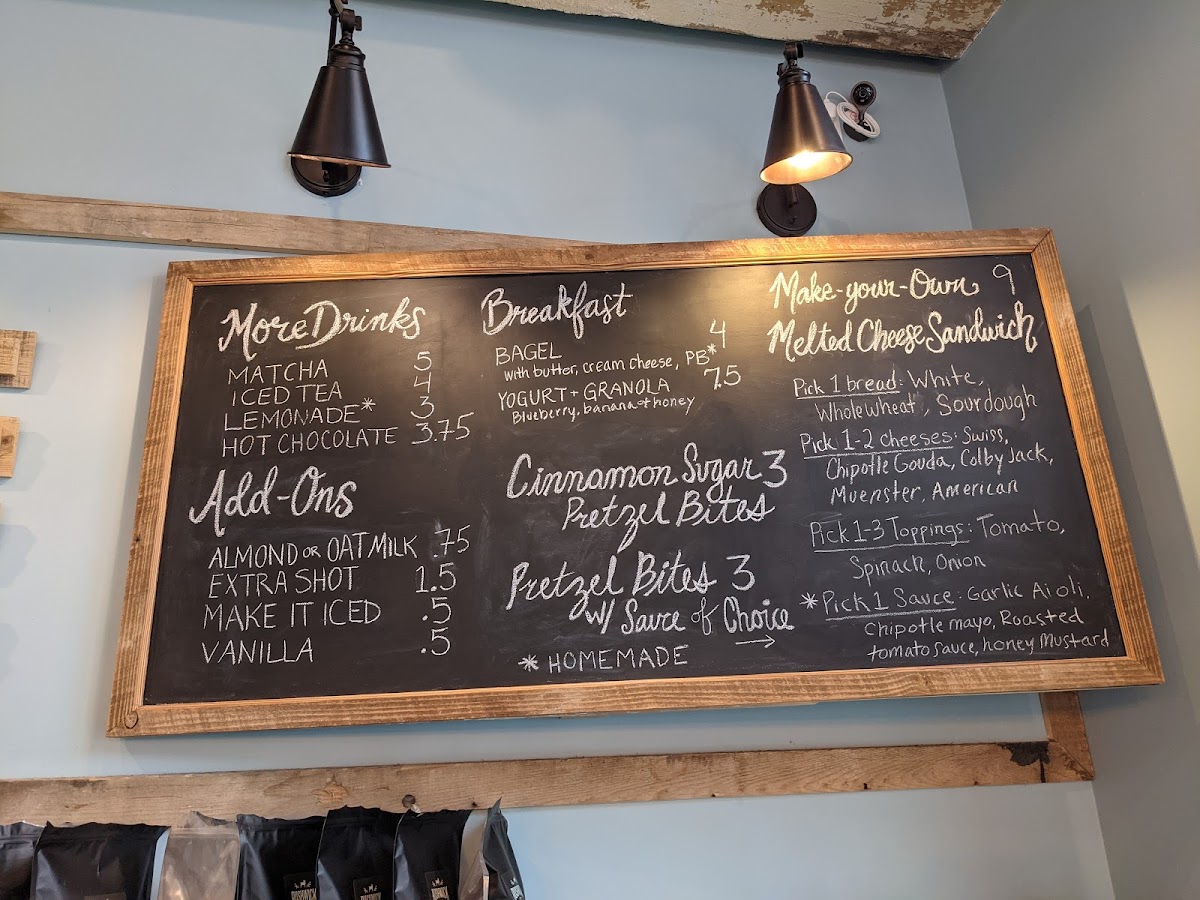 More Drinks
MATCHA 5
ICED TEA 4
LEMONADE* 3
HOT CHOCOLATE 3.75
Add-Ons
ALMOND OR OAT MILK .75
EXTRA SHOT 1.5
MAKE IT ICED .5
VANILLA .5
Breakfast
BAGEL 4
with butter, cream cheese, PB*
YOGURT + GRANOLA 7.5
Blueberry, banana + honey
Cinnamon Sugar 3
Pretzel Bites
Pretzel Bites 3
w/ Sauce of Choice →
* HOMEMADE
Make-your-Own 9
Melted Cheese Sandwich
Pick 1 bread: White,
Wholewheat, Sourdough
Pick 1-2 cheeses: Swiss,
Chipotle Gouda, Colby Jack,
Muenster, American
Pick 1-3 Toppings: Tomato,
Spinach, Onion
*Pick 1 Sauce: Garlic Aioli,
Chipotle mayo, Roasted
tomato sauce, honey mustard